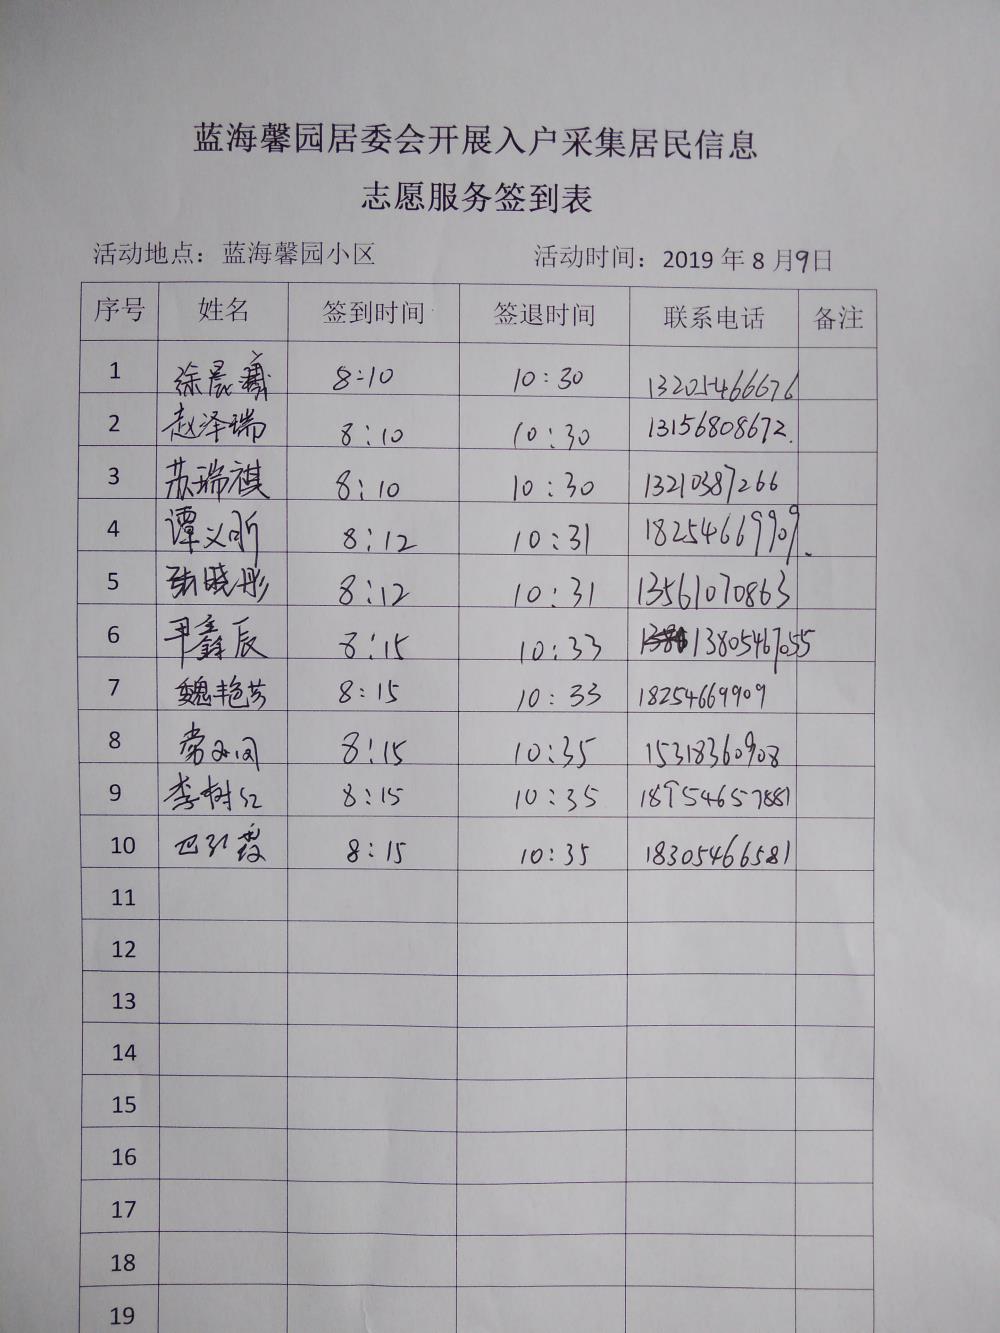 蓝海馨园居委会开展入户采集居民信息
志愿服务签到表
活动地点：蓝海馨园小区 活动时间：2019年8月9日
序号 姓名 签到时间 签退时间 联系电话 备注
1 徐晨 8:10 10:30 13205466676
2 赵泽瑞 8:10 10:30 13156808672.
3 苏瑞祺 8:10 10:30 13210387266
4 谭义昕 8:12 10:31 18254669909.
5 张晓彤 8:12 10:31 13561070863
6 鑫辰 8:15 10:33 13805467055
7 魏艳芳 8:15 10:33 18254669909
8 常 8:15 10:35 15318360908
9 李树红 8:15 10:35 18954657881
10 巴 霞 8:15 10:35 18305466581
11
12
13
14
15
16
17
18
19